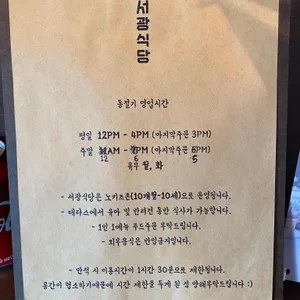 서광식당
동절기 영업시간
평일 12PM - 4PM (마지막주문 3PM)
주말 AM - PM (마지막주문 PM)
12 6 5
휴무 월, 화
- 서광식당은 노키즈존(10개월-10세)으로 운영됩니다.
테라스에서 유아 및 반려견 동반 식사가 가능합니다.
- 1인 1메뉴 푸드주문 부탁드립니다.
- 외부음식은 반입금지입니다.
- 만석 시 이용시간이 1시간 30분으로 제한됩니다.
공간이 협소하기때문에 시간 제한을 두게 된 점 양해부탁드립니다 :)